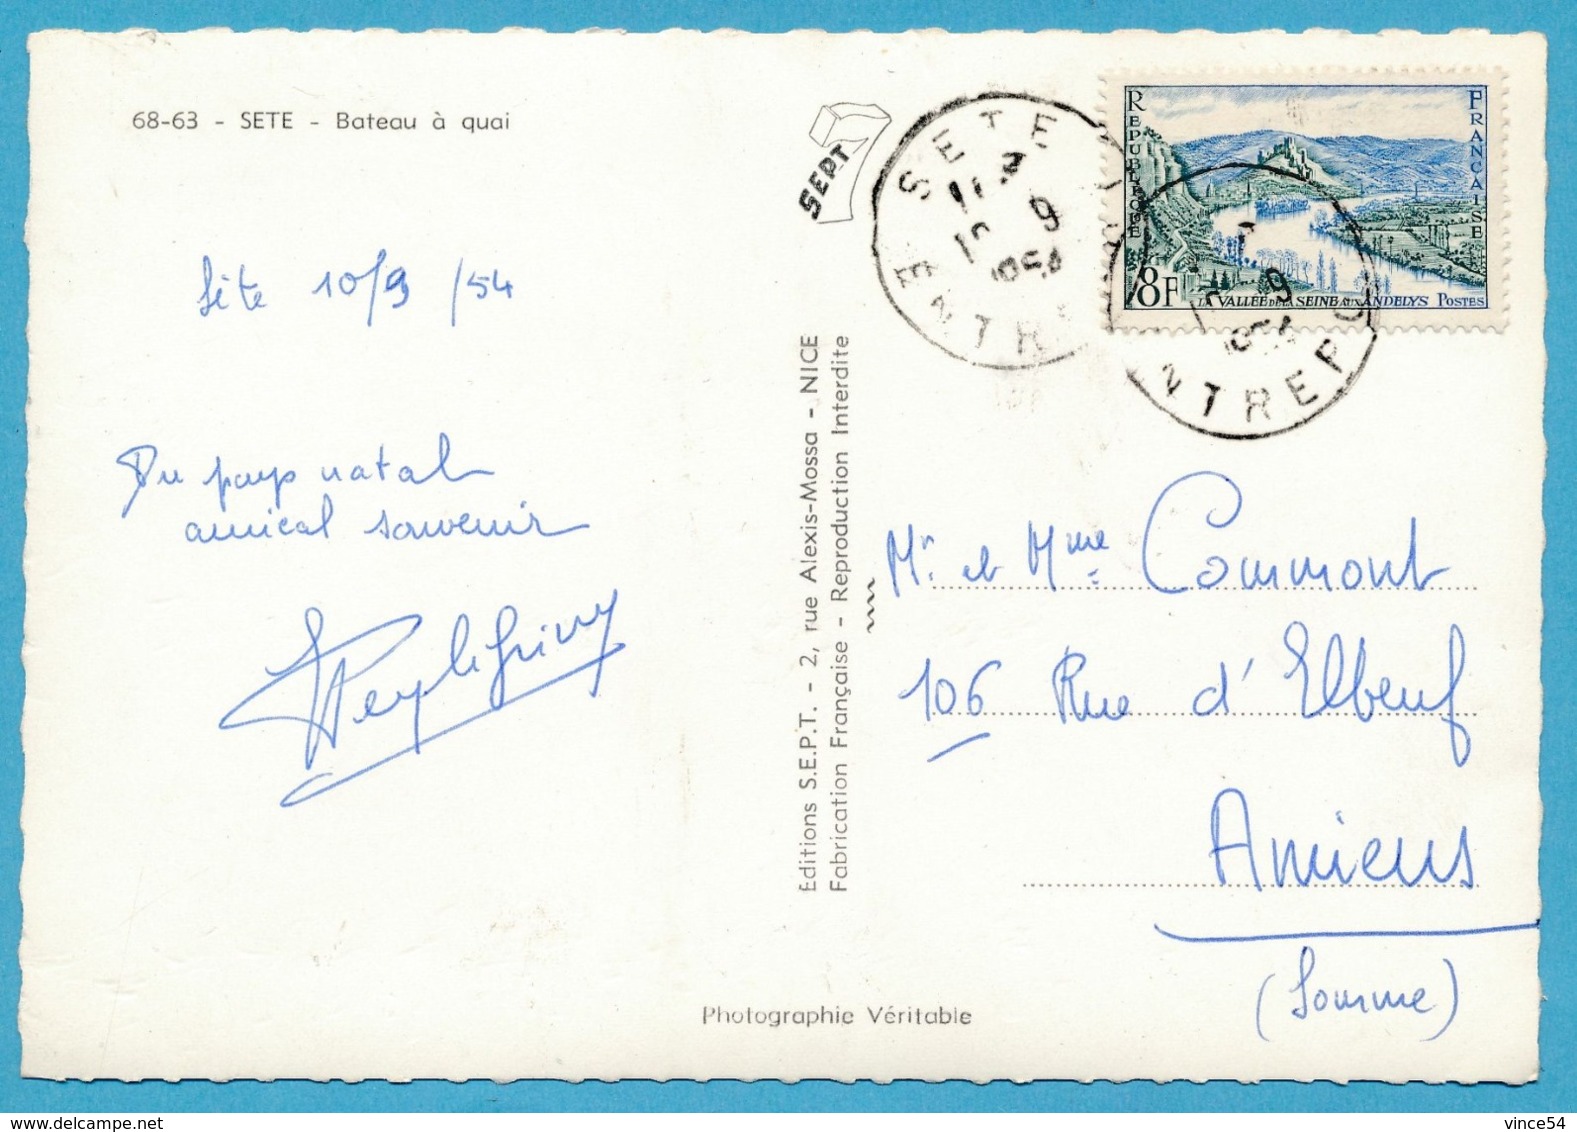 68-63 - SETE - Bateau à quai
SEPT
Sète 10/9/54
Du pays natal
amical souvenir
Editions S.E.P.T. - 2, rue Alexis-Mossa - NICE
Fabrication Française - Reproduction Interdite
SETE
10 9
1954
ENTREPO
REPUBLIQUE
FRANCAISE
8F
LA VALLÉE DE LA SEINE AUX ANDELYS POSTES
Mr. et Mme Commont
106 Rue d'Elbeuf
Amiens
(Somme)
Photographie Véritable
vince54